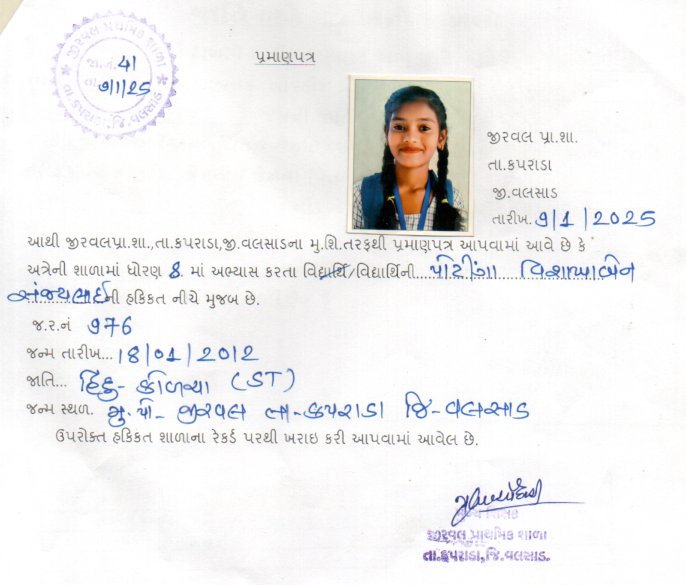 જીરવલ પ્રાથમિક શાળા
જા.નં. 41
તા. 9/1/25
તા.કપરાડા, જિ.વલસાડ
પ્રમાણપત્ર
જીરવલ પ્રા.શા.
તા.કપરાડા
જી.વલસાડ
તારીખ. 9/1/2025
આથી જીરવલપ્રા.શા.,તા.કપરાડા,જી.વલસાડના મુ.શિ.તરફથી પ્રમાણપત્ર આપવામાં આવે છે કે
અત્રેની શાળામાં ધોરણ 8 માં અભ્યાસ કરતા વિદ્યાર્થિ/વિદ્યાર્થિની.. પોટીંગા વિશાખાબેન
સંજયભાઈની હકિકત નીચે મુજબ છે.
જ.ર.નં ૧76
જન્મ તારીખ... 18/01/2012
જાતિ... હિંદુ- કોળચા (ST)
જન્મ સ્થળ. મુ.પો- જીરવલ તા-કપરાડા જિ-વલસાડ
ઉપરોક્ત હકિકત શાળાના રેકર્ડ પરથી ખરાઇ કરી આપવામાં આવેલ છે.
જીરવલ પ્રાથમિક શાળા
તા.કપરાડા,જિ.વલસાડ.